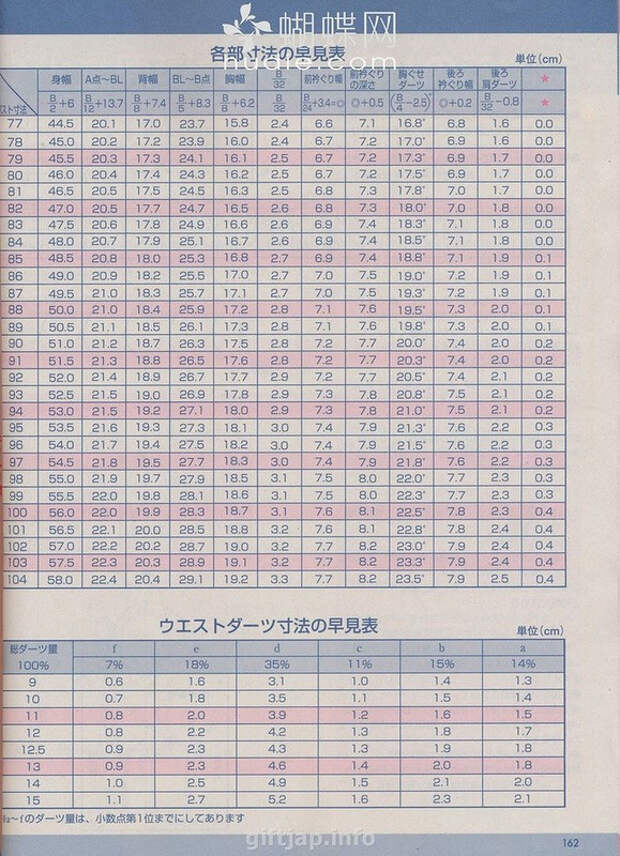 蝴蝶网
hudie.com
各部寸法の早見表
単位(cm)
スト寸法 身幅 A点〜BL 背幅 BL〜B点 胸幅 B/32 前衿ぐり幅 前衿ぐりの深さ 胸ぐせダーツ 後ろ衿ぐり幅 後ろ肩ダーツ ★
B/2+6 B/12+13.7 B/8+7.4 B/5+8.3 B/8+6.2 B/32 B/24+3.4=◎ ◎+0.5 (B/4−2.5)° ◎+0.2 B/32−0.8 ★
77 44.5 20.1 17.0 23.7 15.8 2.4 6.6 7.1 16.8° 6.8 1.6 0.0
78 45.0 20.2 17.2 23.9 16.0 2.4 6.7 7.2 17.0° 6.9 1.6 0.0
79 45.5 20.3 17.3 24.1 16.1 2.5 6.7 7.2 17.3° 6.9 1.7 0.0
80 46.0 20.4 17.4 24.3 16.2 2.5 6.7 7.2 17.5° 6.9 1.7 0.0
81 46.5 20.5 17.5 24.5 16.3 2.5 6.8 7.3 17.8° 7.0 1.7 0.0
82 47.0 20.5 17.7 24.7 16.5 2.6 6.8 7.3 18.0° 7.0 1.8 0.0
83 47.5 20.6 17.8 24.9 16.6 2.6 6.9 7.4 18.3° 7.1 1.8 0.0
84 48.0 20.7 17.9 25.1 16.7 2.6 6.9 7.4 18.5° 7.1 1.8 0.0
85 48.5 20.8 18.0 25.3 16.8 2.7 6.9 7.4 18.8° 7.1 1.9 0.1
86 49.0 20.9 18.2 25.5 17.0 2.7 7.0 7.5 19.0° 7.2 1.9 0.1
87 49.5 21.0 18.3 25.7 17.1 2.7 7.0 7.5 19.3° 7.2 1.9 0.1
88 50.0 21.0 18.4 25.9 17.2 2.8 7.1 7.6 19.5° 7.3 2.0 0.1
89 50.5 21.1 18.5 26.1 17.3 2.8 7.1 7.6 19.8° 7.3 2.0 0.1
90 51.0 21.2 18.7 26.3 17.5 2.8 7.2 7.7 20.0° 7.4 2.0 0.2
91 51.5 21.3 18.8 26.5 17.6 2.8 7.2 7.7 20.3° 7.4 2.0 0.2
92 52.0 21.4 18.9 26.7 17.7 2.9 7.2 7.7 20.5° 7.4 2.1 0.2
93 52.5 21.5 19.0 26.9 17.8 2.9 7.3 7.8 20.8° 7.5 2.1 0.2
94 53.0 21.5 19.2 27.1 18.0 2.9 7.3 7.8 21.0° 7.5 2.1 0.2
95 53.5 21.6 19.3 27.3 18.1 3.0 7.4 7.9 21.3° 7.6 2.2 0.3
96 54.0 21.7 19.4 27.5 18.2 3.0 7.4 7.9 21.5° 7.6 2.2 0.3
97 54.5 21.8 19.5 27.7 18.3 3.0 7.4 7.9 21.8° 7.6 2.2 0.3
98 55.0 21.9 19.7 27.9 18.5 3.1 7.5 8.0 22.0° 7.7 2.3 0.3
99 55.5 22.0 19.8 28.1 18.6 3.1 7.5 8.0 22.3° 7.7 2.3 0.3
100 56.0 22.0 19.9 28.3 18.7 3.1 7.6 8.1 22.5° 7.8 2.3 0.4
101 56.5 22.1 20.0 28.5 18.8 3.2 7.6 8.1 22.8° 7.8 2.4 0.4
102 57.0 22.2 20.2 28.7 19.0 3.2 7.7 8.2 23.0° 7.9 2.4 0.4
103 57.5 22.3 20.3 28.9 19.1 3.2 7.7 8.2 23.3° 7.9 2.4 0.4
104 58.0 22.4 20.4 29.1 19.2 3.3 7.7 8.2 23.5° 7.9 2.5 0.4
ウエストダーツ寸法の早見表
単位(cm)
総ダーツ量 f e d c b a
100% 7% 18% 35% 11% 15% 14%
9 0.6 1.6 3.1 1.0 1.4 1.3
10 0.7 1.8 3.5 1.1 1.5 1.4
11 0.8 2.0 3.9 1.2 1.6 1.5
12 0.8 2.2 4.2 1.3 1.8 1.7
12.5 0.9 2.3 4.3 1.3 1.9 1.8
13 0.9 2.3 4.6 1.4 2.0 1.8
14 1.0 2.5 4.9 1.5 2.1 2.0
15 1.1 2.7 5.2 1.6 2.3 2.1
a〜fのダーツ量は、小数点第1位までにしてあります
giftjap.info
162